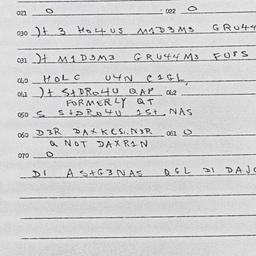 021 0 : 022 0
030 )t 3 HO4US M1D3M3 GRU44
031 )t M1D3M3 GRU44M3 FUSS
040 HOLC U4N C1GL
041 )t S+DRO4U QAP 042
FORMERLY QT
050 S S+DRO4U 1S+ NAS
060 D3R DAXKCS..N3R 061 0
Q NOT DAXR1N
070 0
D1 AS+G3NAS QGL D1 DAJC